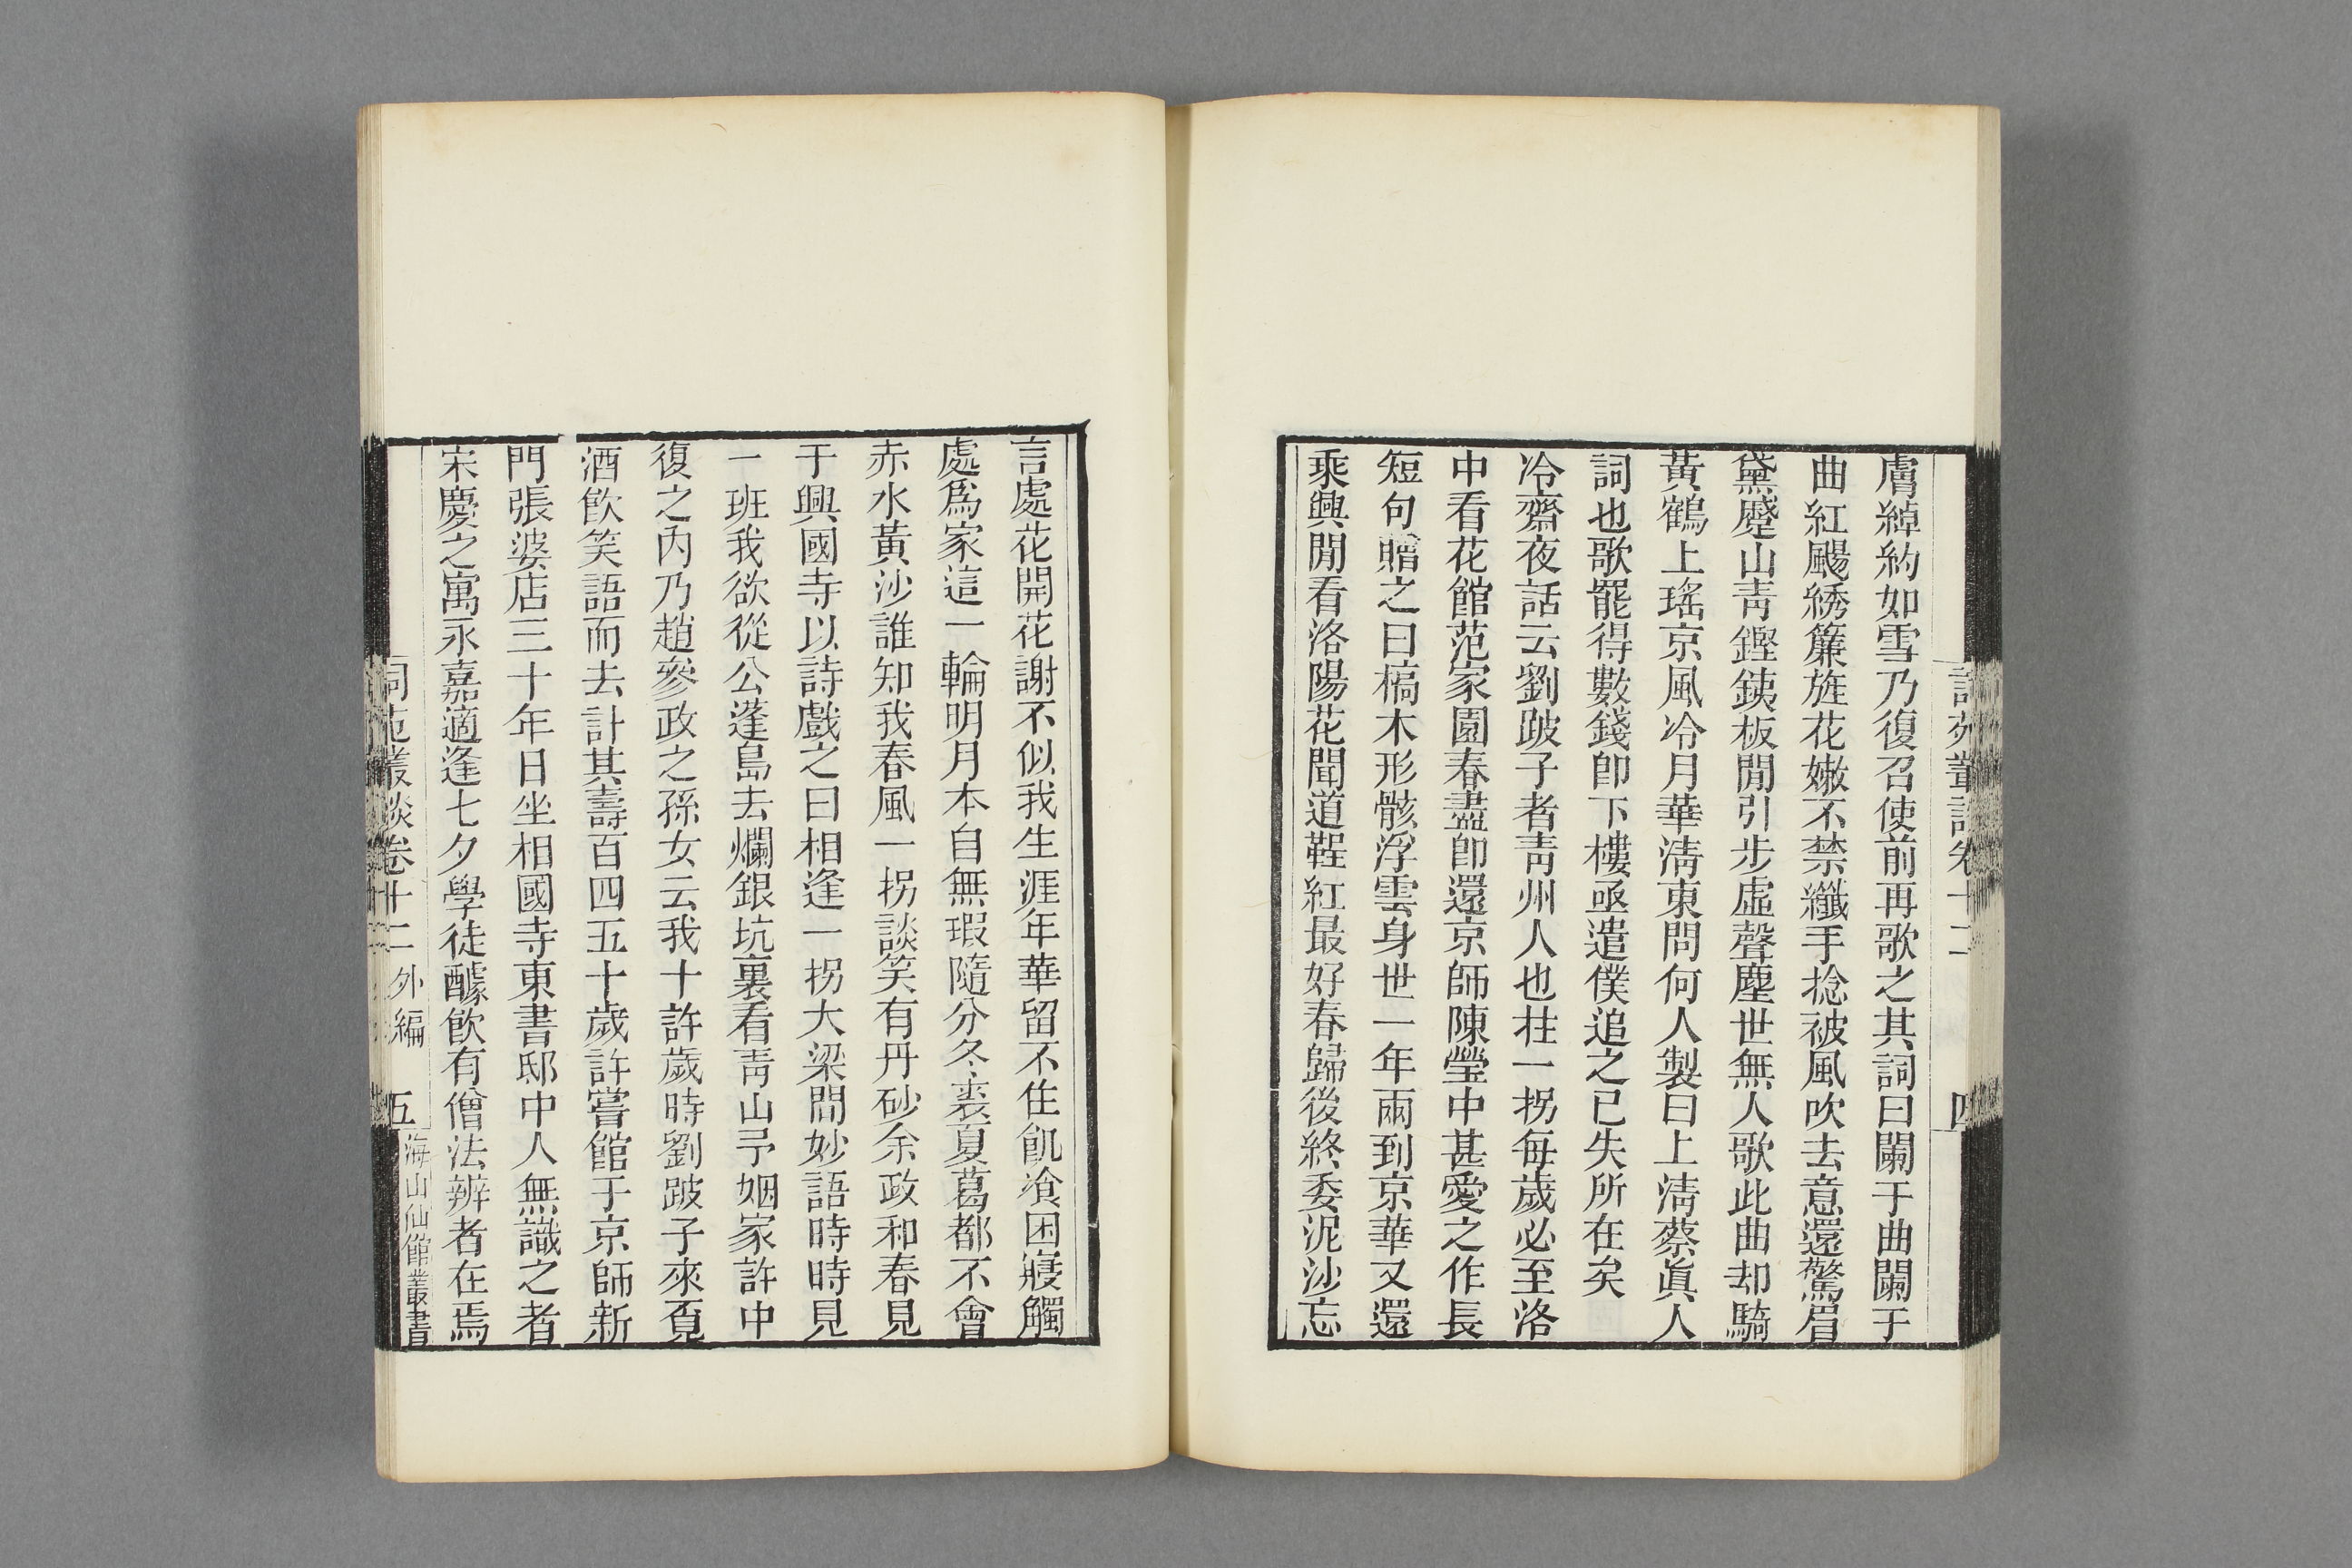 膚綽約如雪乃復召使前再歌之其詞曰闌于曲闌于
曲紅颺綉簾旌花嫩不禁纖手捻被風吹去意還驚眉
黛蹙山青鏗鐵板閒引步虛聲塵世無人歌此曲却騎
黃鶴上瑤京風冷月華淸東問何人製曰上淸蔡眞人
詞也歌罷得數錢卽下樓亟遣僕追之已失所在矣
冷齋夜話云劉跛子者靑州人也拄一拐每歲必至洛
中看花館范家園春盡卽還京師陳瑩中甚愛之作長
短句贈之曰槁木形骸浮雲身世一年兩到京華又還
乘興閒看洛陽花聞道鞓紅最好春歸後終委泥沙忘
言處花開花謝不似我生涯年華留不住飢飡困寢觸
處爲家這一輪明月本自無瑕隨分冬裘夏葛都不會
赤水黃沙誰知我春風一拐談笑有丹砂余政和春見
于興國寺以詩戲之曰相逢一拐大梁間妙語時時見
一班我欲從公蓬島去爛銀坑裏看靑山予姻家許中
復之內乃趙參政之孫女云我十許歲時劉跛子來覓
酒飮笑語而去計其壽百四五十歲許嘗館于京師新
門張婆店三十年日坐相國寺東書邸中人無識之者
宋慶之寓永嘉適逢七夕學徒醵飮有僧法辨者在焉
詞苑叢談卷十二 外編 五
海山仙館叢書